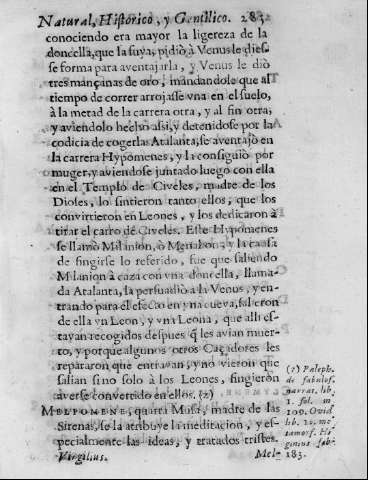 Natural, Historico, y Gentilico. 283
conociendo era mayor la ligereza de la
doncella, que la suya, pidiò à Venus le dies-
se forma para aventajarla, y Venus le diò
tres mançanas de oro, mandandole que al
tiempo de correr arrojasse vna en el suelo,
à la metad de la carrera otra, y al fin otra,
y aviendolo hecho assi, y detenidose por la
codicia de cogerlas Atalanta, se aventajò en
la carrera Hypomenes, y la consiguiò por
muger, y aviendose juntado luego con ella
en el Templo de Civeles, madre de los
Dioses, lo sintieron tanto ellos, que los
convirtieron en Leones, y los dedicaron à
tirar el carro de Civeles. Este Hypomenes
se llamò Milanion, ò Menalion, y la causa
de fingirse lo referido, fue que saliendo
Milanion à caza con vna doncella, llama-
da Atalanta, la persuadiò a la Venus, y en-
trando para el efecto en vna cueva, salieron
de ella vn Leon, y vna Leona, que alli es-
tavan recogidos despues q̃ les avian muer-
to, y porque algunos otros Caçadores les
repararon que entravan, y no vieron que
salian sino solo à los Leones, fingieron
averse convertido en ellos. (2)
MELPOMENE, quarta Musa, madre de las
Sirenas, se la atribuye la meditacion, y es-
pecialmente las ideas, y tratados tristes.
Virgilius. Mel-
(2) Paleph.
de fabulos.
narrat. lib.
1. fol. m
109. Ovid
lib. 10. me
tamorf. Hi
ginius fab.
183.